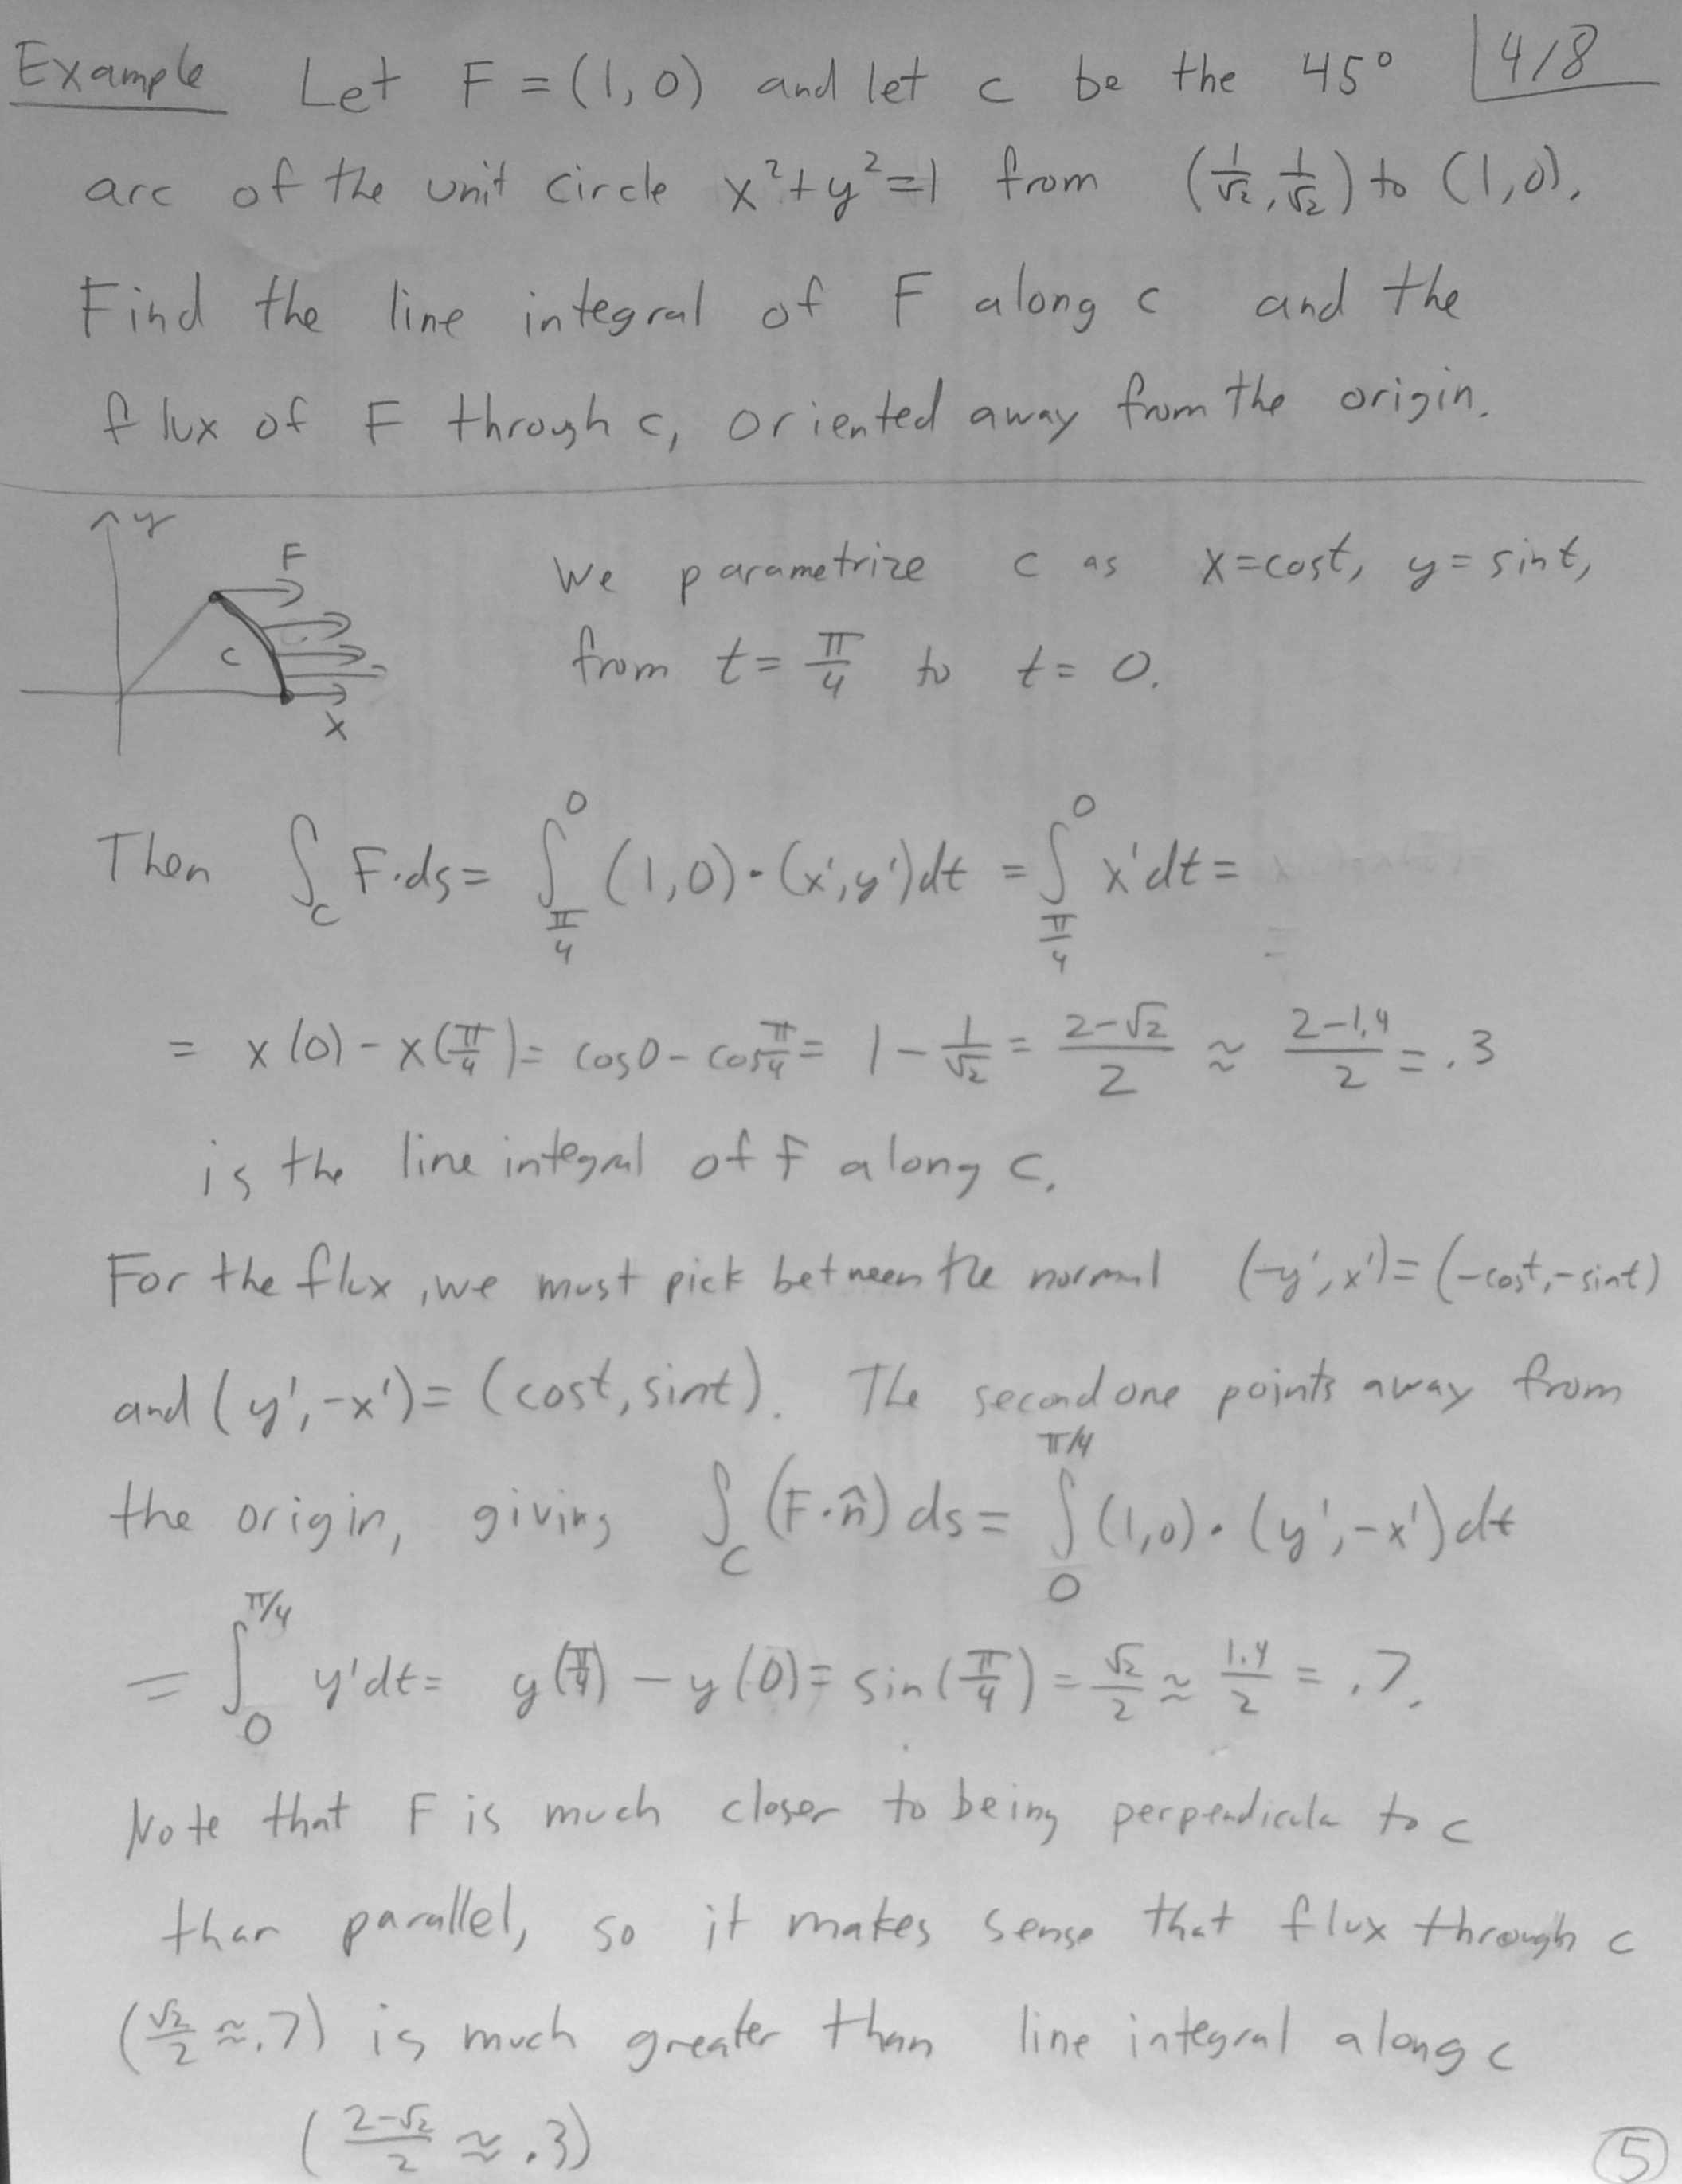 Example Let F = (1, 0) and let c be the 45° 4/8
arc of the unit circle x²+y²=1 from (1/√2, 1/√2) to (1,0).
Find the line integral of F along c and the
flux of F through c, oriented away from the origin.
y
F
c
x
We parametrize c as x=cost, y=sint,
from t= π/4 to t= 0.
Then ∫_c F·ds = ∫_{π/4}^0 (1,0)·(x',y')dt = ∫_{π/4}^0 x'dt =
= x(0) - x(π/4) = cos0 - cos π/4 = 1 - 1/√2 = (2-√2)/2 ≈ (2-1.4)/2 = .3
is the line integral of F along c.
For the flux, we must pick between the normal (-y', x') = (-cost, -sint)
and (y', -x') = (cost, sint). The second one points away from
the origin, giving ∫_C (F·n̂) ds = ∫_0^{π/4} (1,0)·(y',-x')dt
= ∫_0^{π/4} y'dt = y(π/4) - y(0) = sin(π/4) = √2/2 ≈ 1.4/2 = .7.
Note that F is much closer to being perpendicular to c
than parallel, so it makes sense that flux through c
(√2/2 ≈ .7) is much greater than line integral along c
((2-√2)/2 ≈ .3)
5